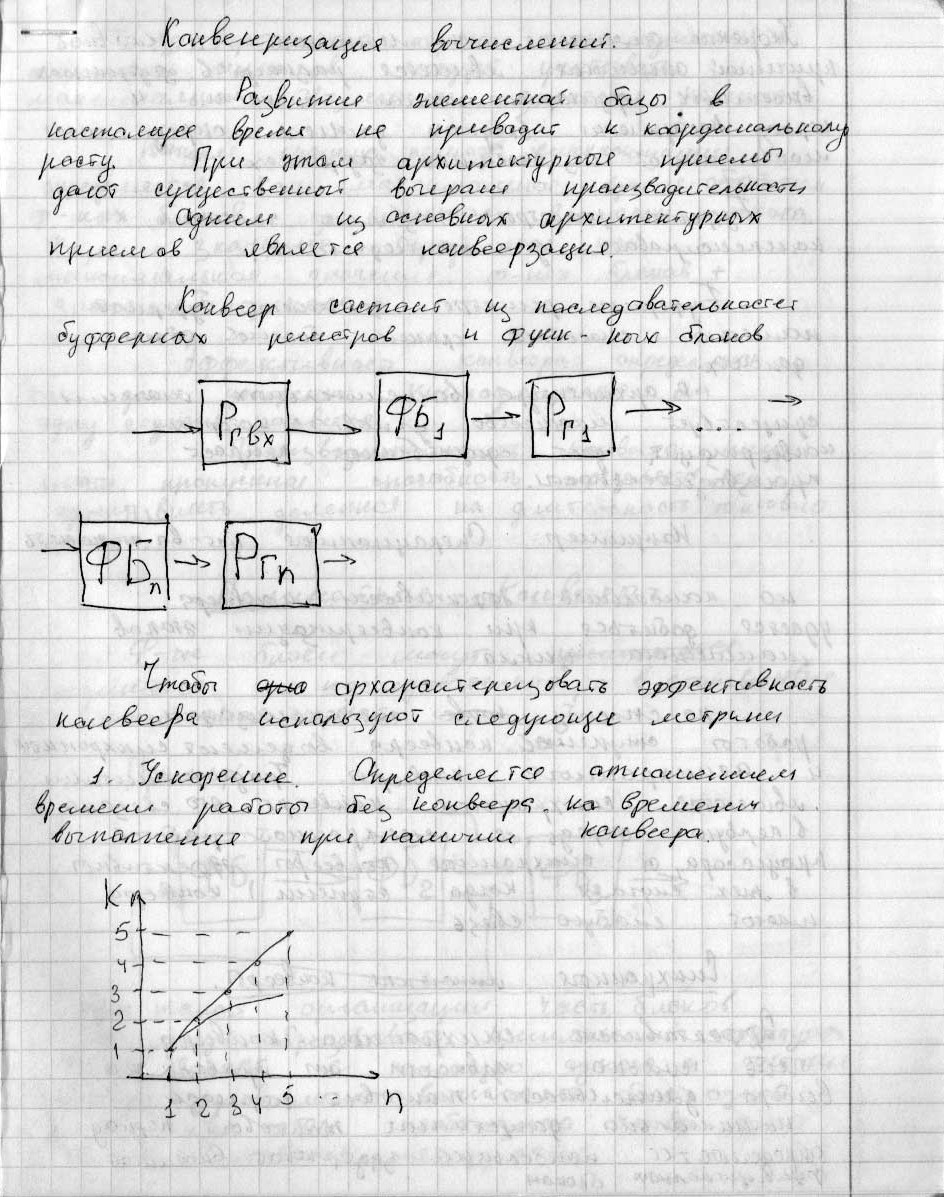 Конвенризация вычислений.
Развитие элементной базы в
настоящее время не приводит к координальному
росту. При этом архитектурные приемы
дают существенный выиграш производительности
Одним из основных архитектурных
приемов является конвеерзация.
Конвеер состаит из последавательностет
буфферных регистров и функ-ных блоков
Рг вх ФБ1 Рг1 ...
ФБn Ргn
Чтобы архарактеризовать эффективность
конвеера используют следующи метрики
1. Ускорение. Определяется атнашением
времени работы без конвеера, ко времени
выполнения при наличии конвеера.
К
5
4
3
2
1
1 2 3 4 5 ... n